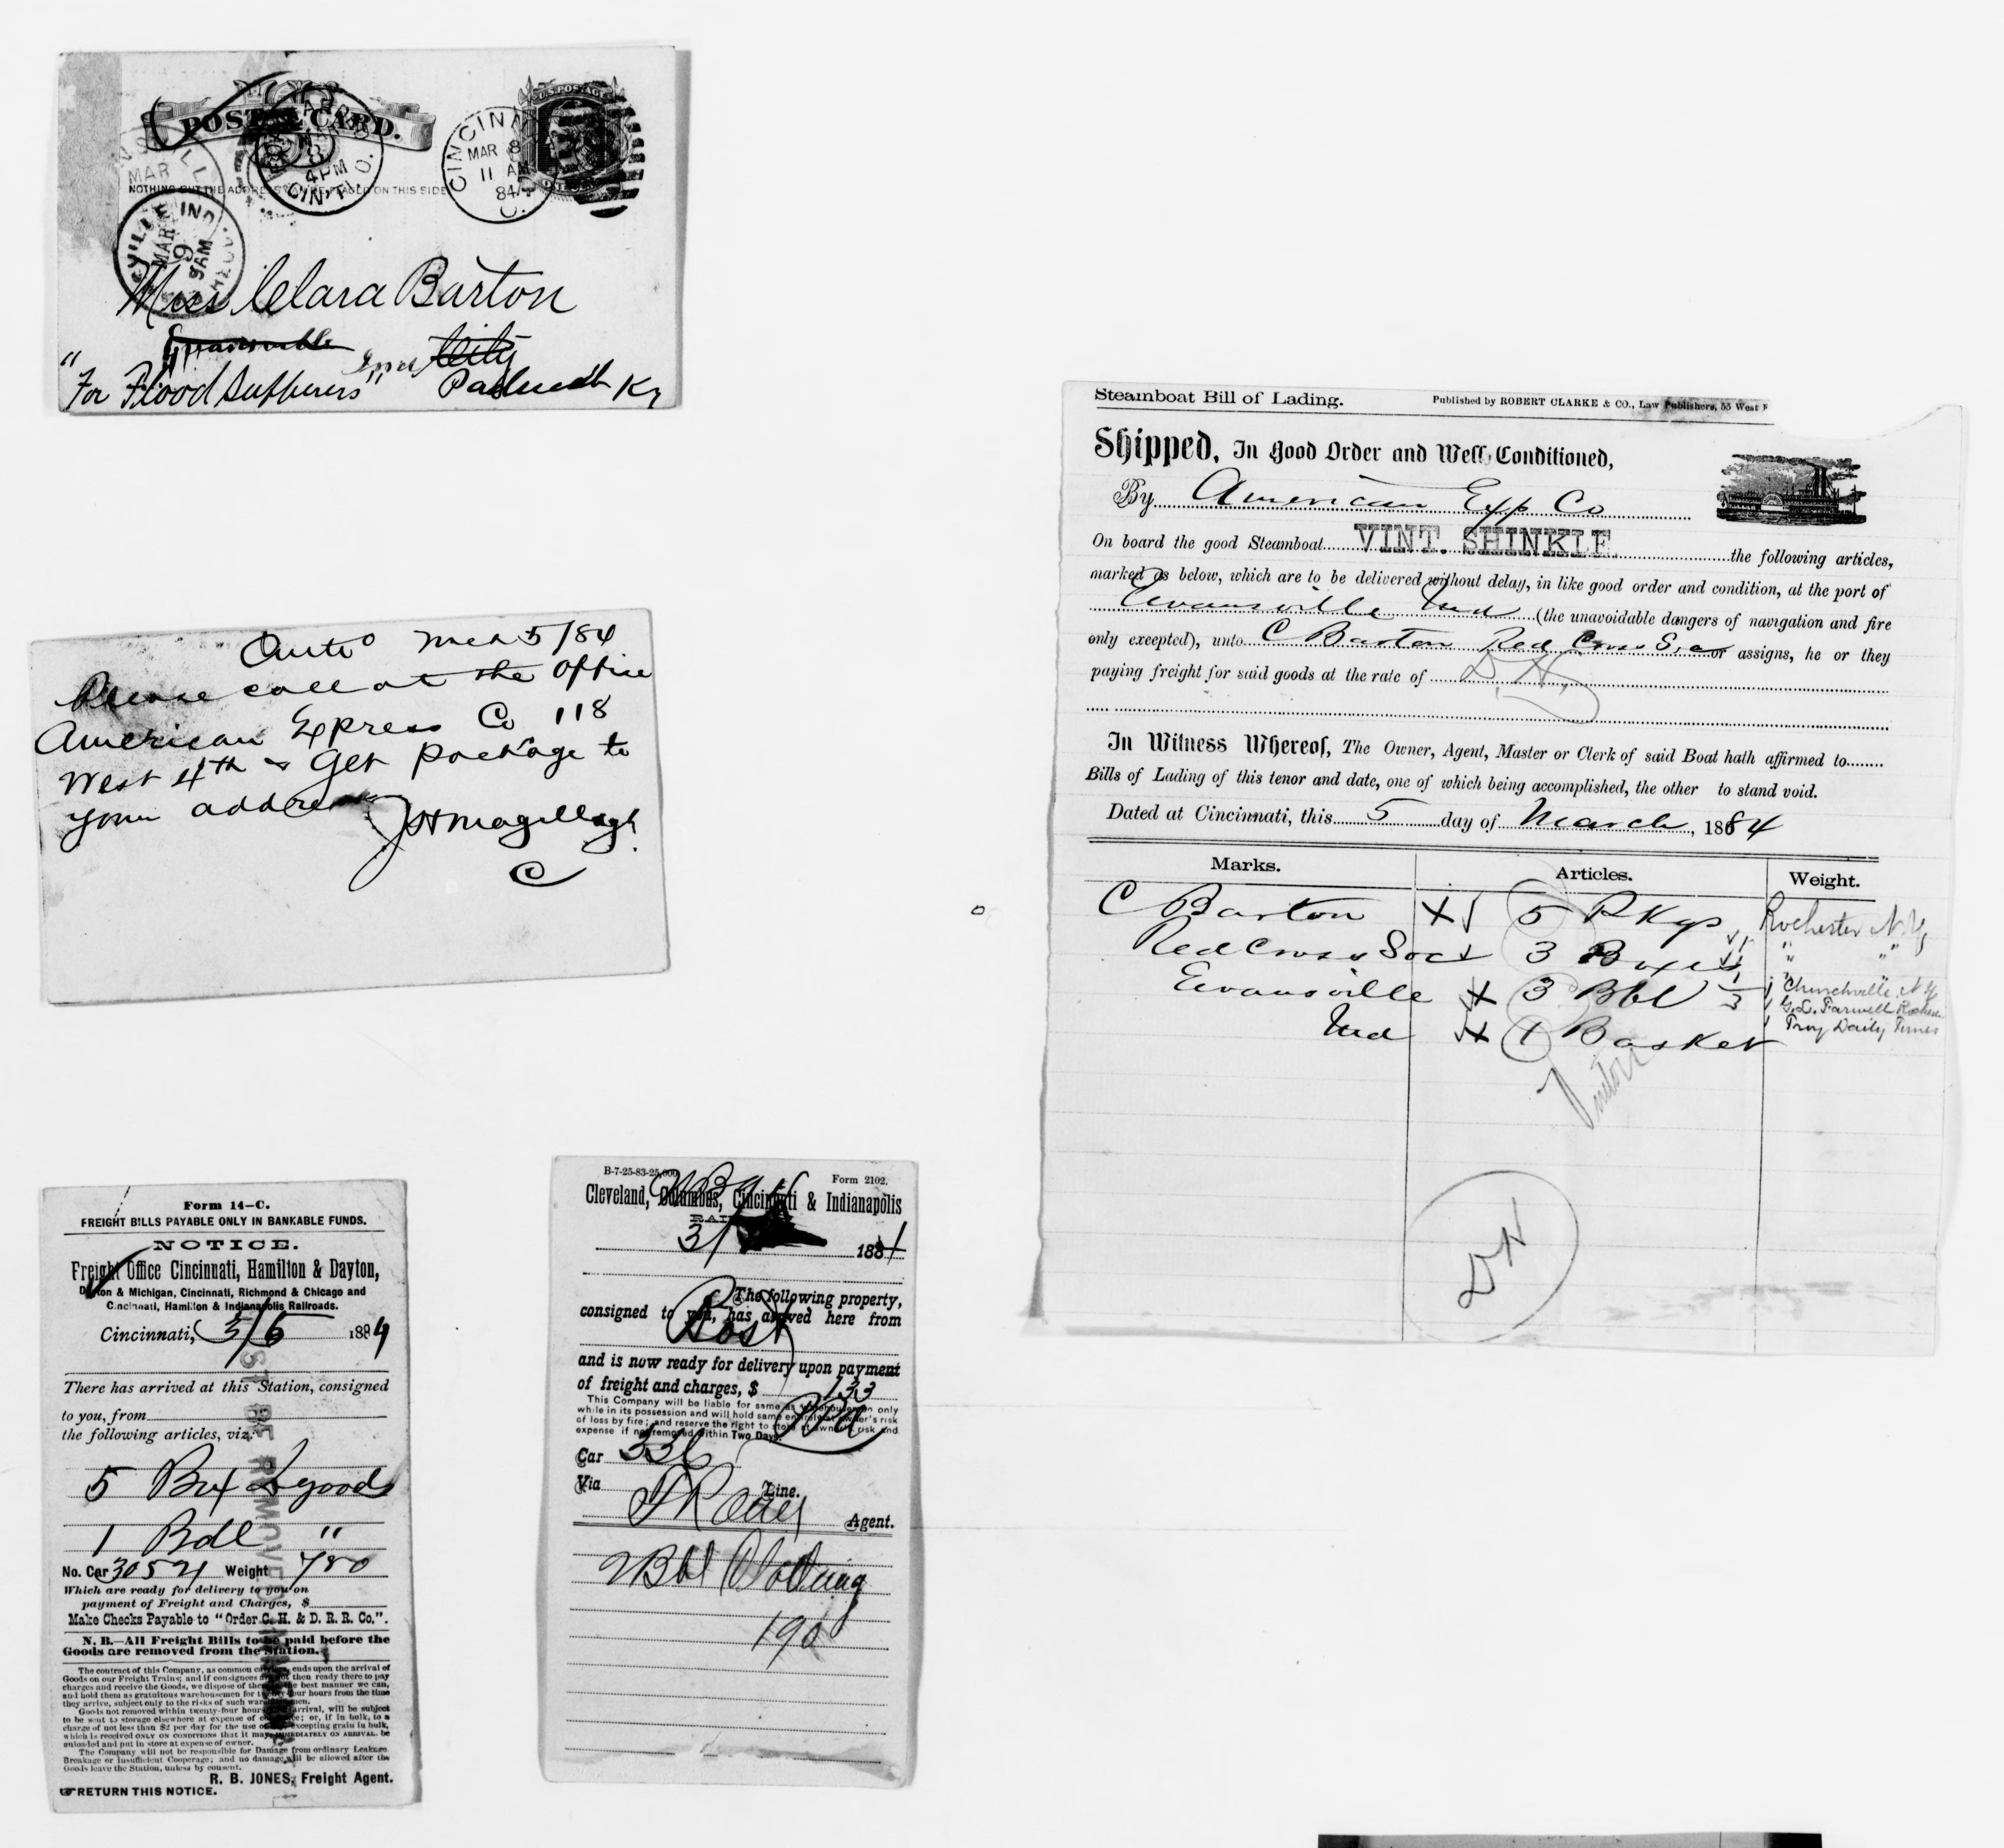 POSTAL CARD.
NOTHING BUT THE ADDRESS CAN BE PLACED ON THIS SIDE
U.S. POSTAGE
CINCINN
MAR 8
11 AM
84
O.
MAR
8
4 PM
CIN'TI O.
MAR
VILLE IND
MAR
9
9 AM
Miss Clara Barton
Evansville Ind City
"For Flood Sufferers" Paducah Ky
Cinti O Mch 5/84
Please call at the office
American Express Co 118
West 4th & Get package to
your address
C
Form 14–C.
FREIGHT BILLS PAYABLE ONLY IN BANKABLE FUNDS.
NOTICE.
Freight Office Cincinnati, Hamilton & Dayton,
Dayton & Michigan, Cincinnati, Richmond & Chicago and
Cincinnati, Hamilton & Indianapolis Railroads.
Cincinnati, 3/5 1884
There has arrived at this Station, consigned
to you, from
the following articles, viz:
5 Bx D goods
1 Bdl "
No. Car 30521 Weight 780
Which are ready for delivery to you on
payment of Freight and Charges, $
Make Checks Payable to "Order C. H. & D. R. R. Co.".
N. B.—All Freight Bills to be paid before the
Goods are removed from the Station.
The contract of this Company, as common carriers, ends upon the arrival of
Goods on our Freight Trains; and if consignees are not then ready there to pay
charges and receive the Goods, we dispose of them in the best manner we can,
and hold them as gratuitous warehousemen for twenty-four hours from the time
they arrive, subject only to the risks of such warehousemen.
Goods not removed within twenty-four hours of arrival, will be subject
to be sent to storage elsewhere at expense of consignee; or, if in bulk, to a
charge of not less than $2 per day for the use of car, excepting grain in bulk,
which is received ONLY ON CONDITIONS that it may IMMEDIATELY ON ARRIVAL be
unloaded and put in store at expense of owner.
The Company will not be responsible for Damage from ordinary Leakage
Breakage or Insufficient Cooperage; and no damage will be allowed after the
Goods leave the Station, unless by consent.
R. B. JONES, Freight Agent.
RETURN THIS NOTICE.
ST BE REMOVED
B-7-25-83-25,000
Form 2102.
Cleveland, Columbus, Cincinnati & Indianapolis
3/ 1884
The following property,
consigned to you, has arrived here from
Bost
and is now ready for delivery upon payment
of freight and charges, $ 133
This Company will be liable for same as warehousemen only
while in its possession and will hold same entirely at owner's risk
of loss by fire; and reserve the right to store at owner's risk and
expense if not removed within Two Days.
Car 336
Via Line.
Agent.
2 Bbl Clothing
190
Steamboat Bill of Lading.
Published by ROBERT CLARKE & CO., Law Publishers, 55 West F
Shipped, In Good Order and Well Conditioned,
By American Exp Co
On board the good Steamboat VINT. SHINKLE the following articles,
marked as below, which are to be delivered without delay, in like good order and condition, at the port of
Evansville Ind (the unavoidable dangers of navigation and fire
only excepted), unto C Barton Red Cross Soc or assigns, he or they
paying freight for said goods at the rate of D. H.
In Witness Whereof, The Owner, Agent, Master or Clerk of said Boat hath affirmed to
Bills of Lading of this tenor and date, one of which being accomplished, the other to stand void.
Dated at Cincinnati, this 5 day of March, 1884
Marks. Articles. Weight.
C Barton X 5 Pkgs Rochester N.Y
Red Cross Soc 3 Boxes " "
Evansville X 3 Bbl 1/3 " Churchville, N.Y
G.L. Farwell Roches
Ind X 1 Basket Troy Daily Times
DH